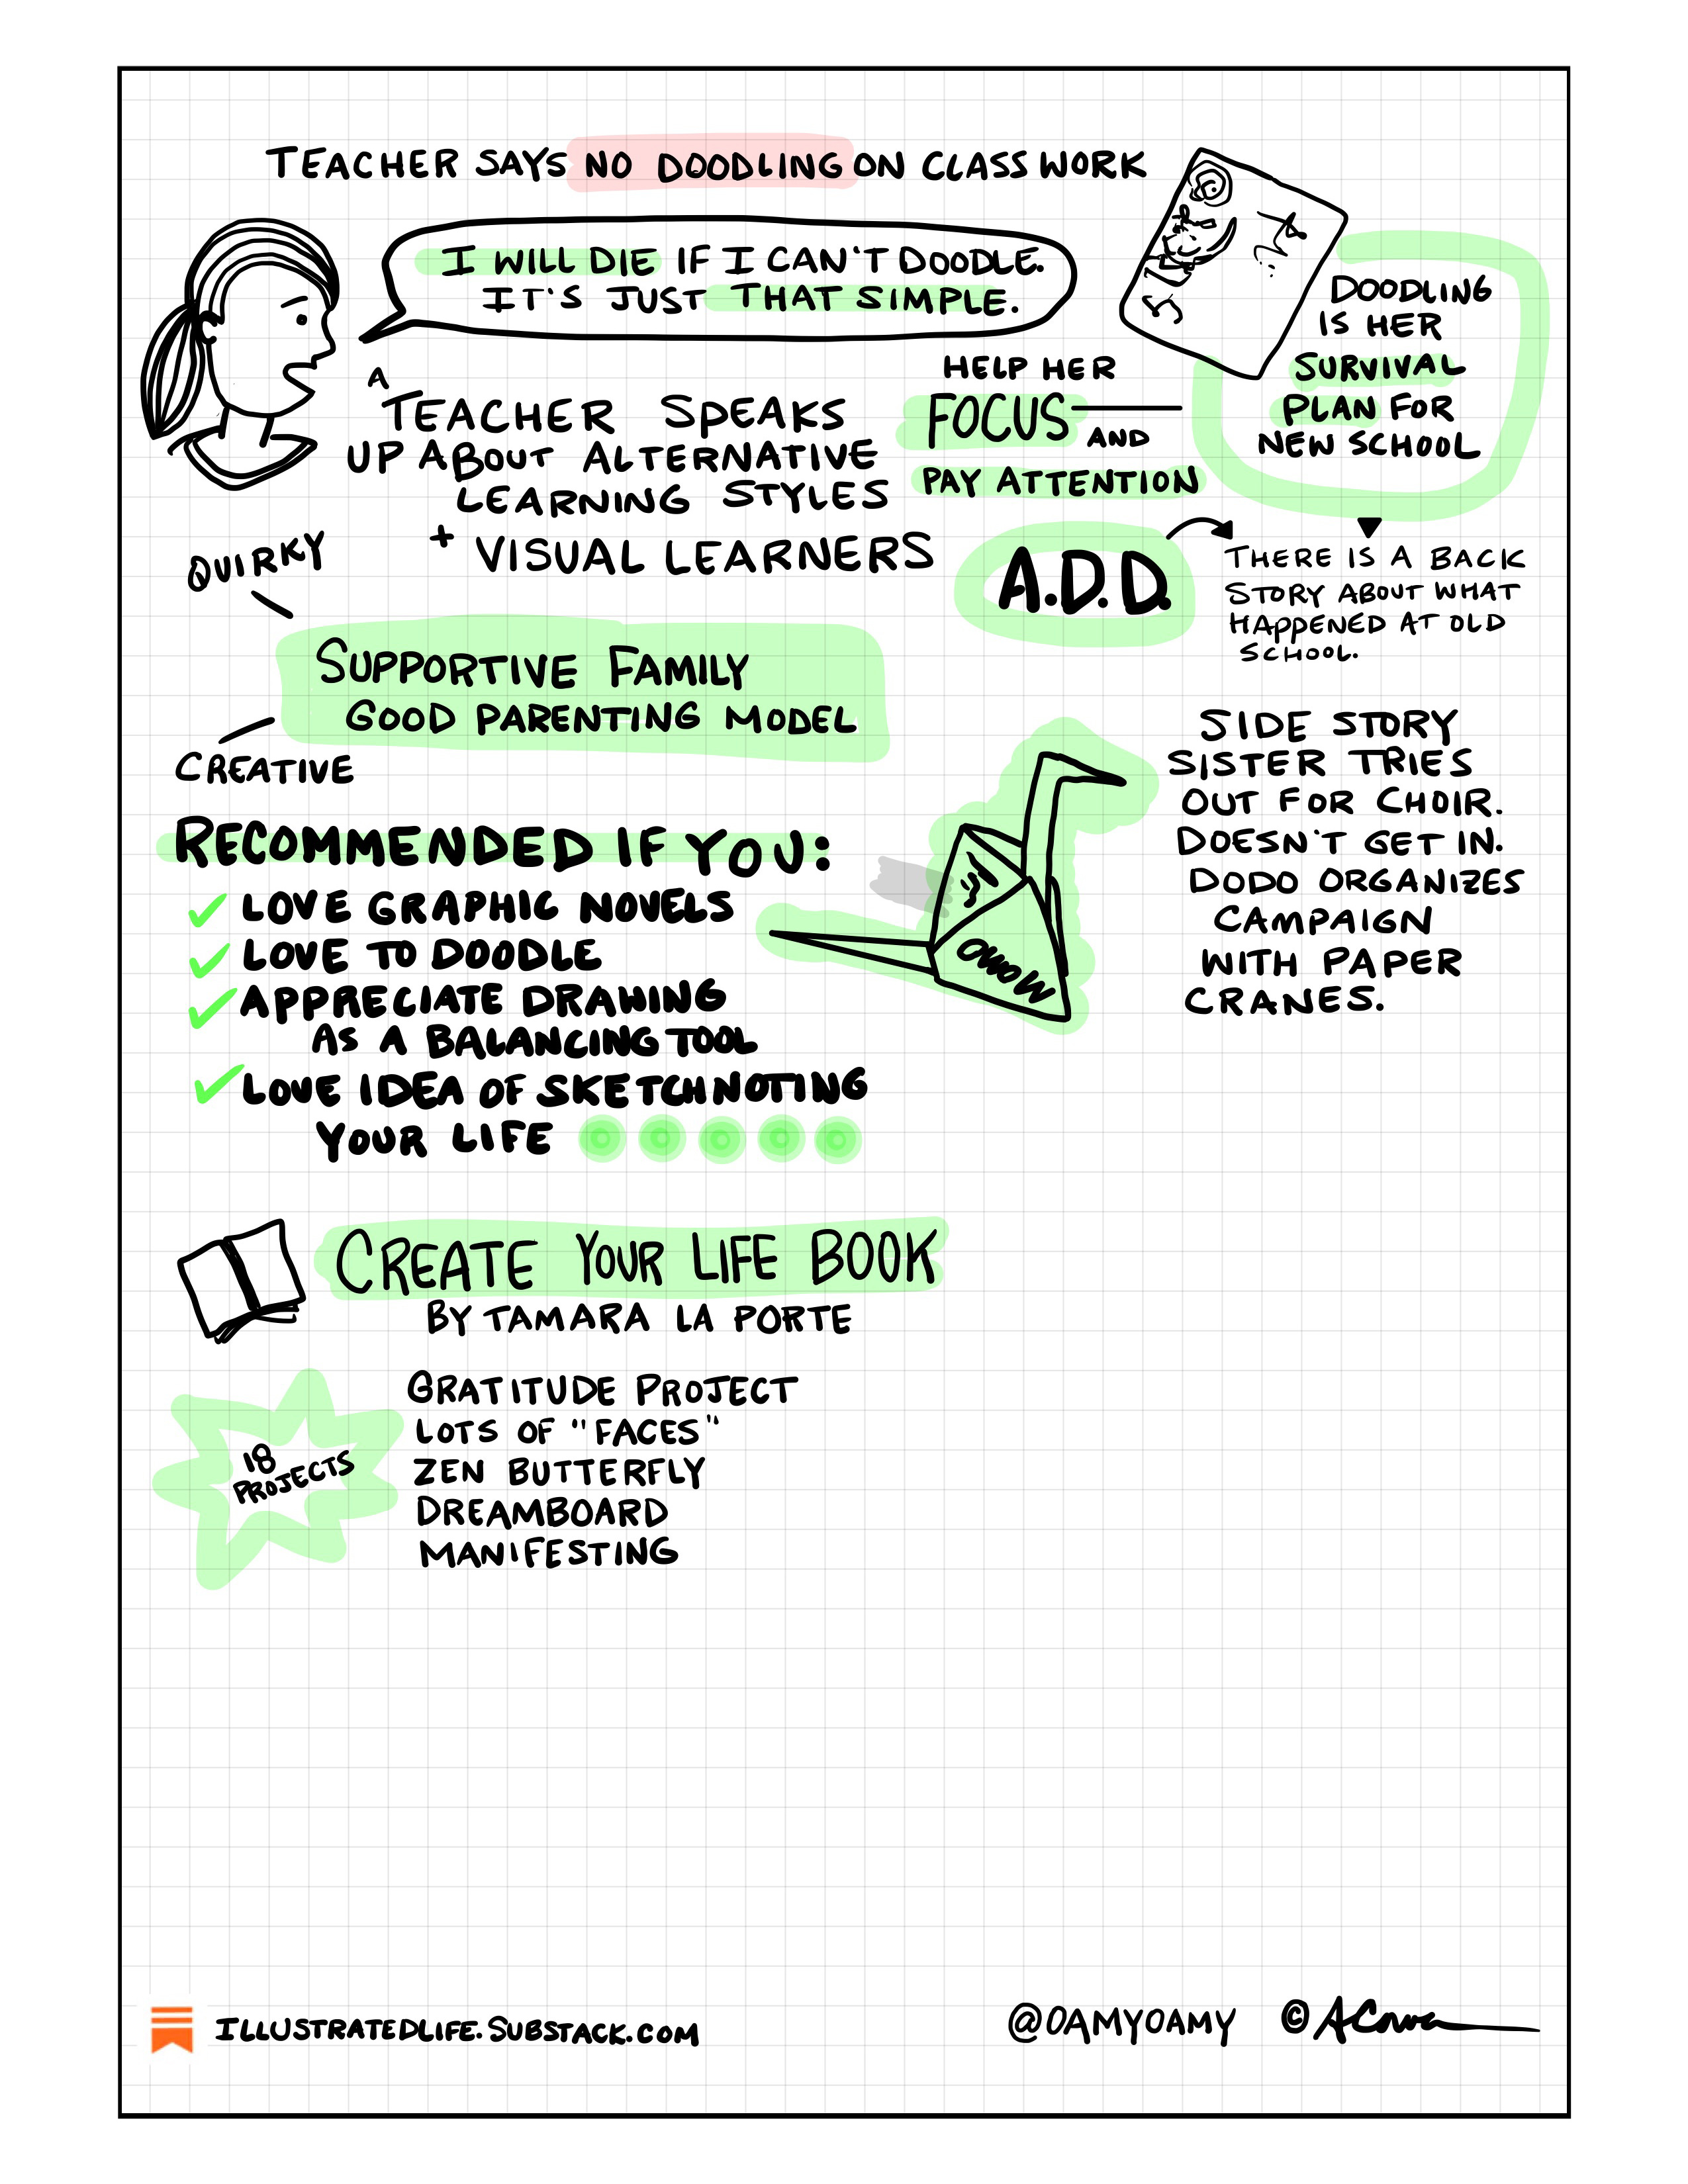 TEACHER SAYS NO DOODLING ON CLASS WORK
I WILL DIE IF I CAN'T DOODLE.
IT'S JUST THAT SIMPLE.
DOODLING
IS HER
SURVIVAL
PLAN FOR
NEW SCHOOL
HELP HER
FOCUS
AND
PAY ATTENTION
A
TEACHER SPEAKS
UP ABOUT ALTERNATIVE
LEARNING STYLES
+ VISUAL LEARNERS
A.D.D.
THERE IS A BACK
STORY ABOUT WHAT
HAPPENED AT OLD
SCHOOL.
QUIRKY
SUPPORTIVE FAMILY
GOOD PARENTING MODEL
CREATIVE
SIDE STORY
SISTER TRIES
OUT FOR CHOIR.
DOESN'T GET IN.
DODO ORGANIZES
CAMPAIGN
WITH PAPER
CRANES.
RECOMMENDED IF YOU:
✓ LOVE GRAPHIC NOVELS
✓ LOVE TO DOODLE
✓ APPRECIATE DRAWING
AS A BALANCING TOOL
✓ LOVE IDEA OF SKETCHNOTING
YOUR LIFE
CREATE YOUR LIFE BOOK
BY TAMARA LA PORTE
18
PROJECTS
GRATITUDE PROJECT
LOTS OF "FACES"
ZEN BUTTERFLY
DREAMBOARD
MANIFESTING
ILLUSTRATEDLIFE.SUBSTACK.COM
@OAMYOAMY ©